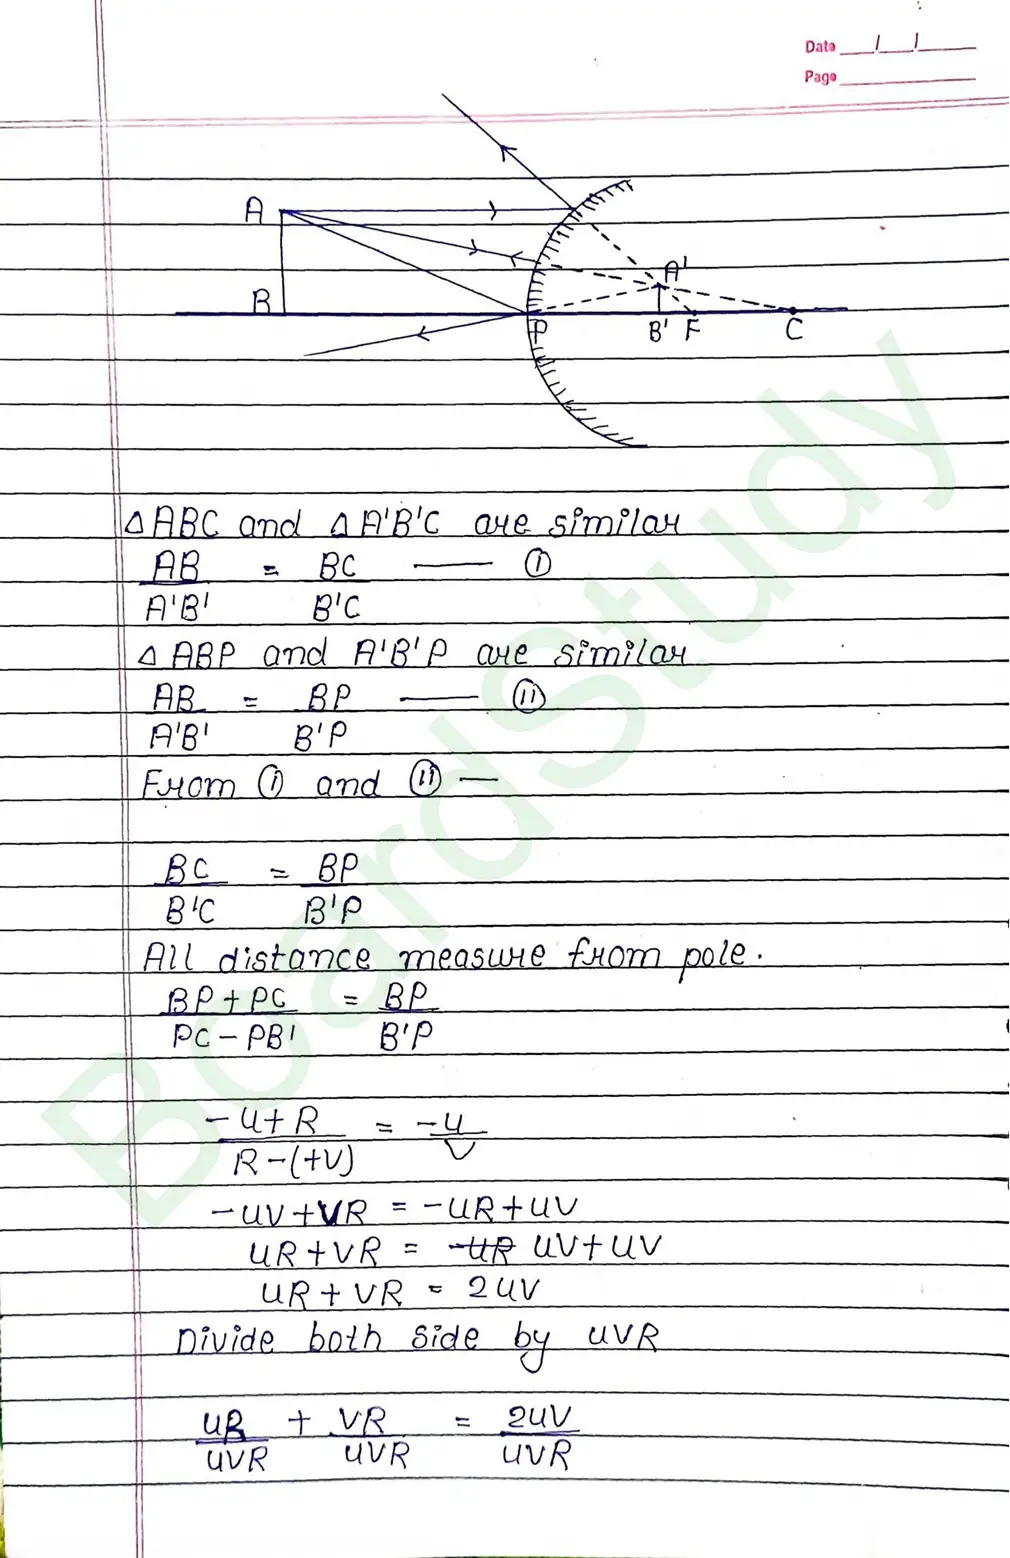 Date __/__/____
Page ________
A
B
P
A'
B' F
C
△ABC and △A'B'C are similar
AB/A'B' = BC/B'C —— (i)
△ABP and A'B'P are similar
AB/A'B' = BP/B'P —— (ii)
From (i) and (ii) —
BC/B'C = BP/B'P
All distance measure from pole.
BP+PC/PC-PB' = BP/B'P
-u+R/R-(+v) = -u/v
-uv+vR = -uR+uv
uR+vR = ~~-uR~~ uv+uv
uR+vR = 2uv
Divide both side by uvR
uR/uvR + vR/uvR = 2uv/uvR
BoardStudy